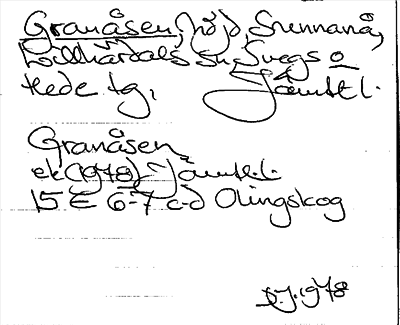 Granåsen, höjd, Sunnanå,
Lillhärdals sn, Svegs o
Hede tg, Jämtl.
Granåsen
ek(1978) Jämtl.
15 E 6-7 c-d Olingskog
1978